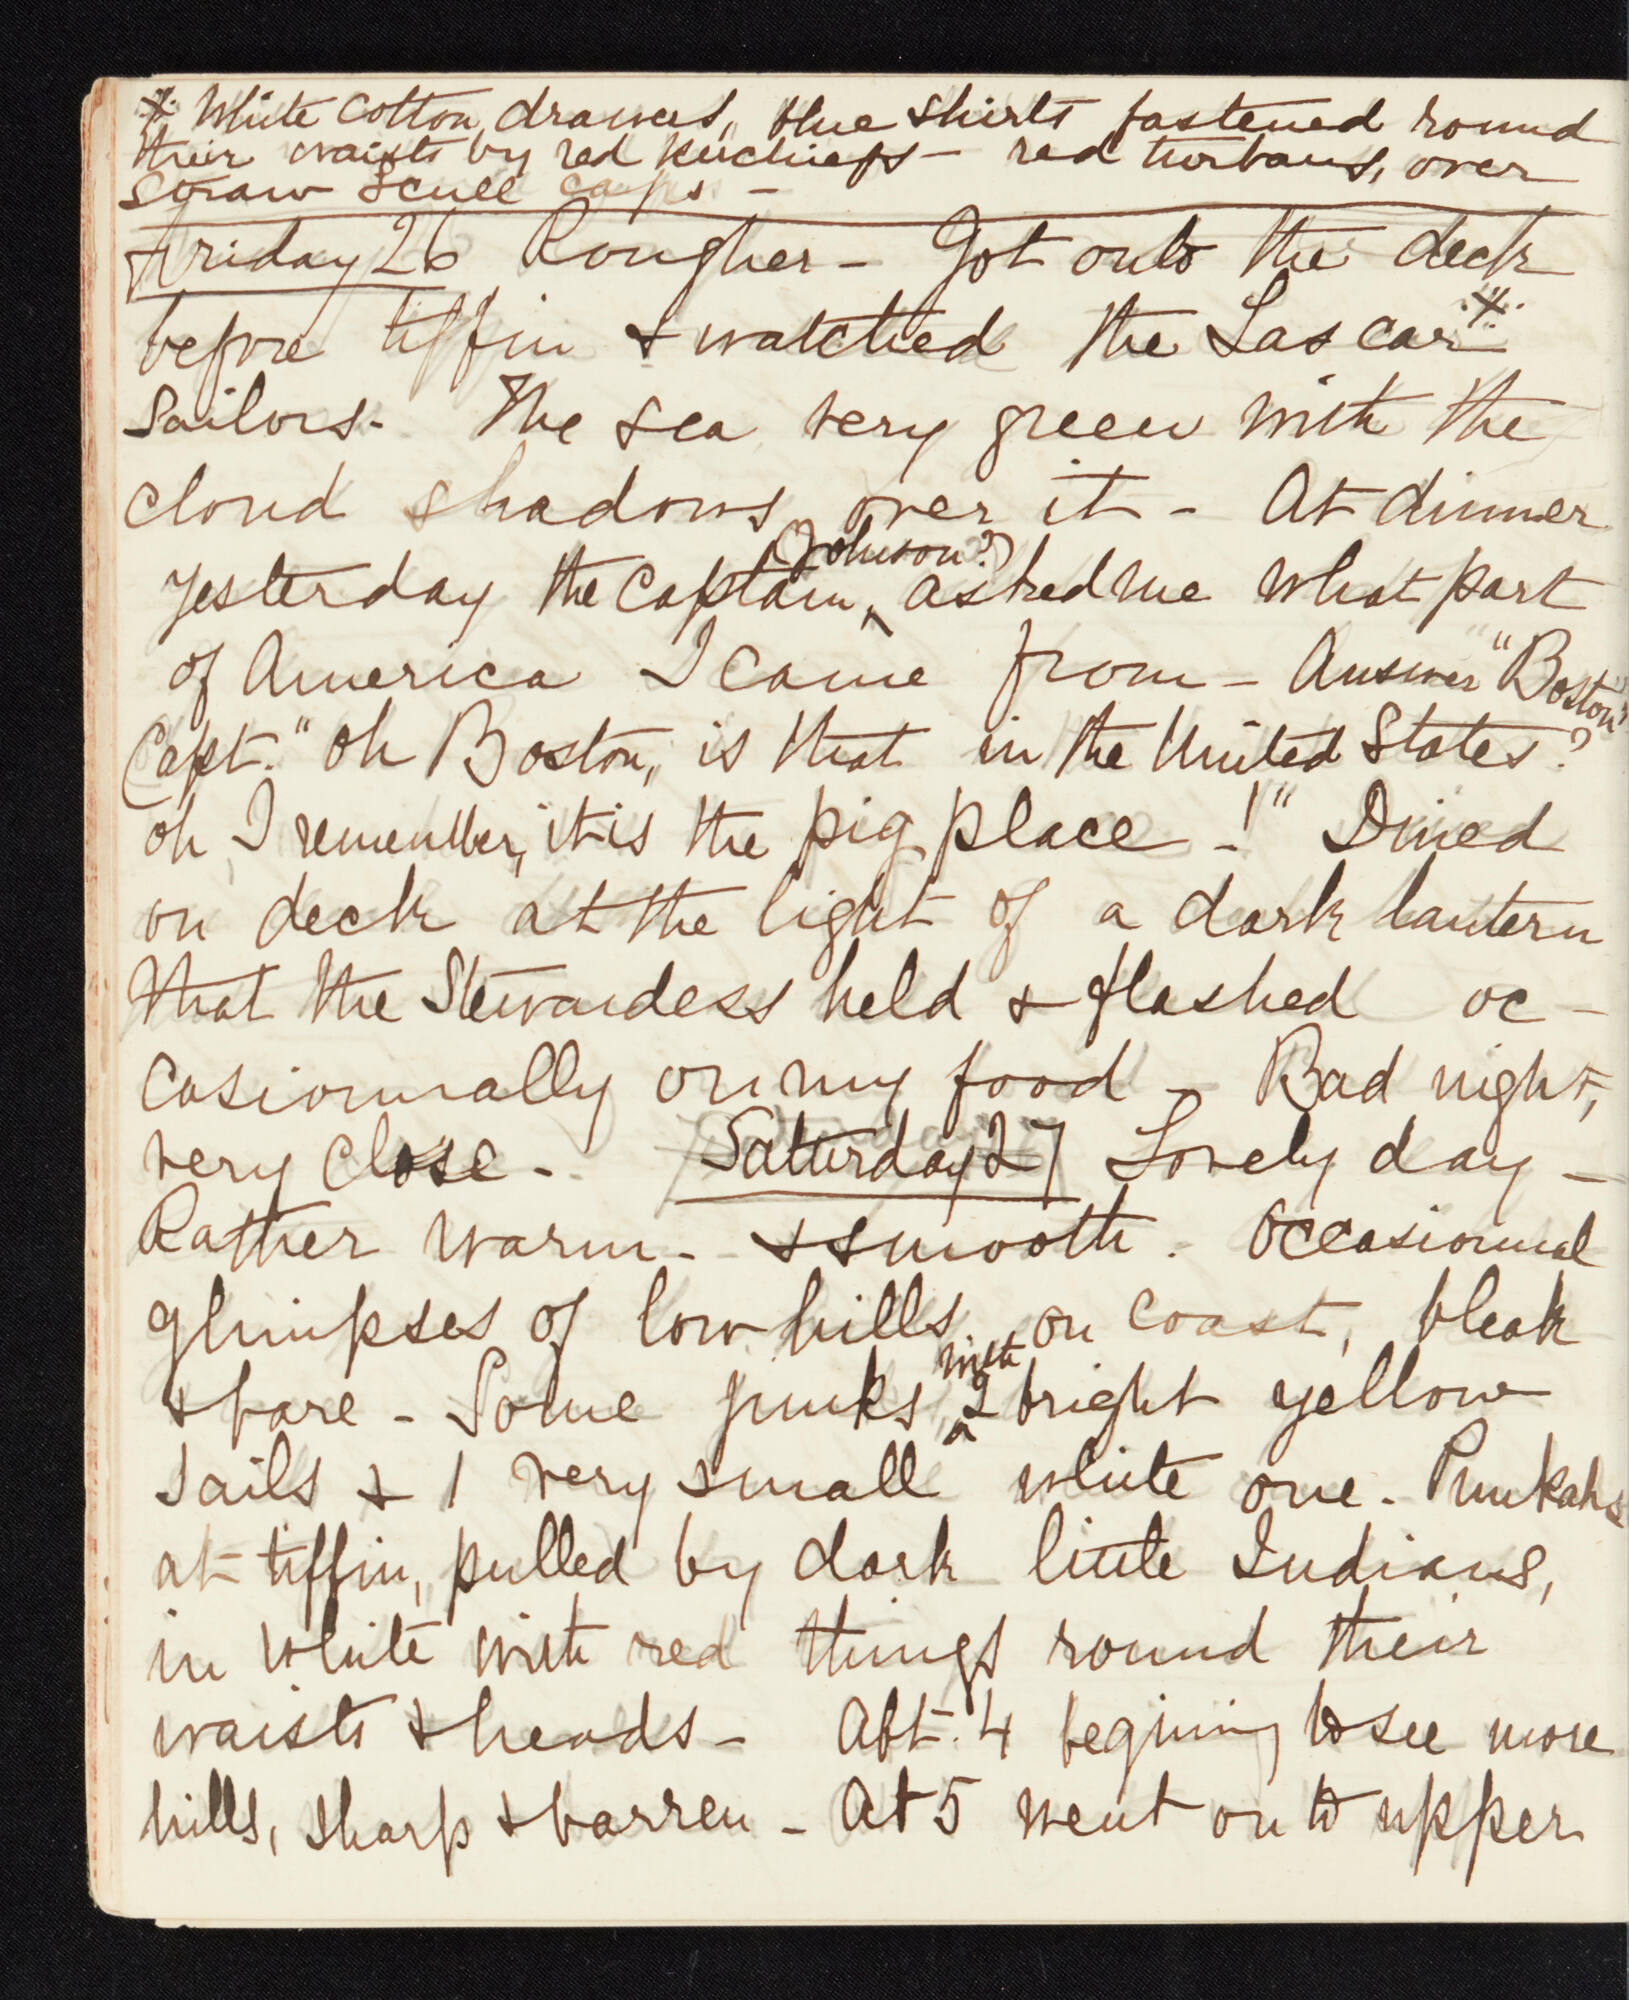 ※ White cotton drawers, blue shirts fastened round
their waists by red kerchiefs – red turbans, over
straw scull caps –
Friday 26 Rougher – Got onto the deck
before tiffin & watched the Lascar ※
sailors. The sea very green with the
cloud shadows over it – At dinner
(Johnson?)
yesterday the Captain, ^ asked me what part
of America I came from – Answer "Boston"
Capt. "Oh Boston, is that in the United States?
oh I remember, it is the pig place – !" Dined
on deck at the light of a dark lantern
that the Stewardess held & flashed oc-
casionnally on my food – Bad night,
very close – Satturday 27 Lovely day –
Rather warm – & smooth. Occasionnal
glimpses of low hills on coast, bleak
with
& bare – Some junks, ^ 2 bright yellow
sails & 1 very small white one. Punkahs
at tiffin, pulled by dark little Indians,
in white with red things round their
waists & heads – Abt. 4 begining to see more
hills, sharp & barren – At 5 went onto upper